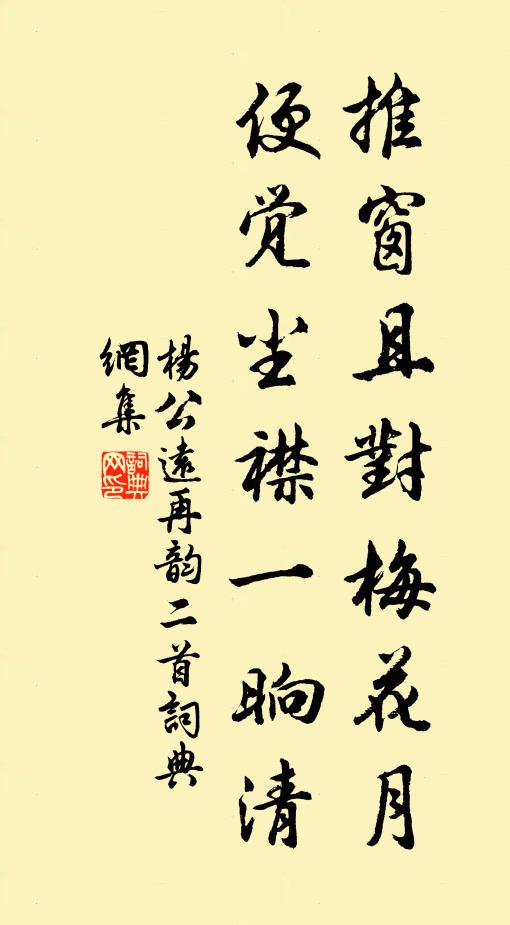 推窗且對梅花月
便觉尘襟一晌清
楊公遠再韵二首詞典
網集
詞典
网印